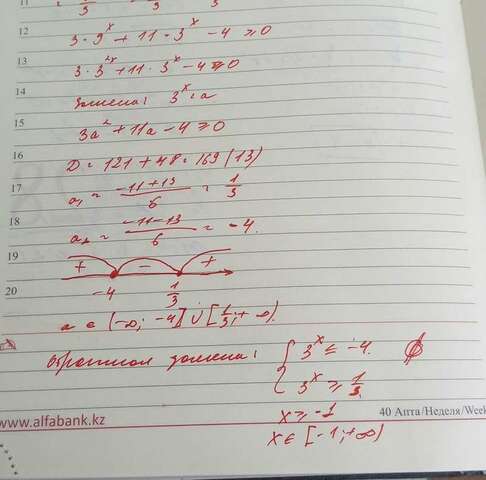 11
3 3
12
3·9^x + 11·3^x - 4 ≥ 0
13
3·3^2x + 11·3^x - 4 ≥ 0
14
Замена: 3^x = a
15
3a² + 11a - 4 ≥ 0
16
D = 121 + 48 = 169 (13)
17
a₁ = (-11+13)/6 = 1/3
18
a₂ = (-11-13)/6 = -4.
19
+ - +
20
-4 1/3
a ∈ (-∞; -4] ∪ [1/3; +∞).
Обратная замена: { 3^x ≤ -4. ∅
3^x ≥ 1/3.
x ≥ -1
x ∈ [-1; +∞)
www.alfabank.kz
40 Апта/Неделя/Week